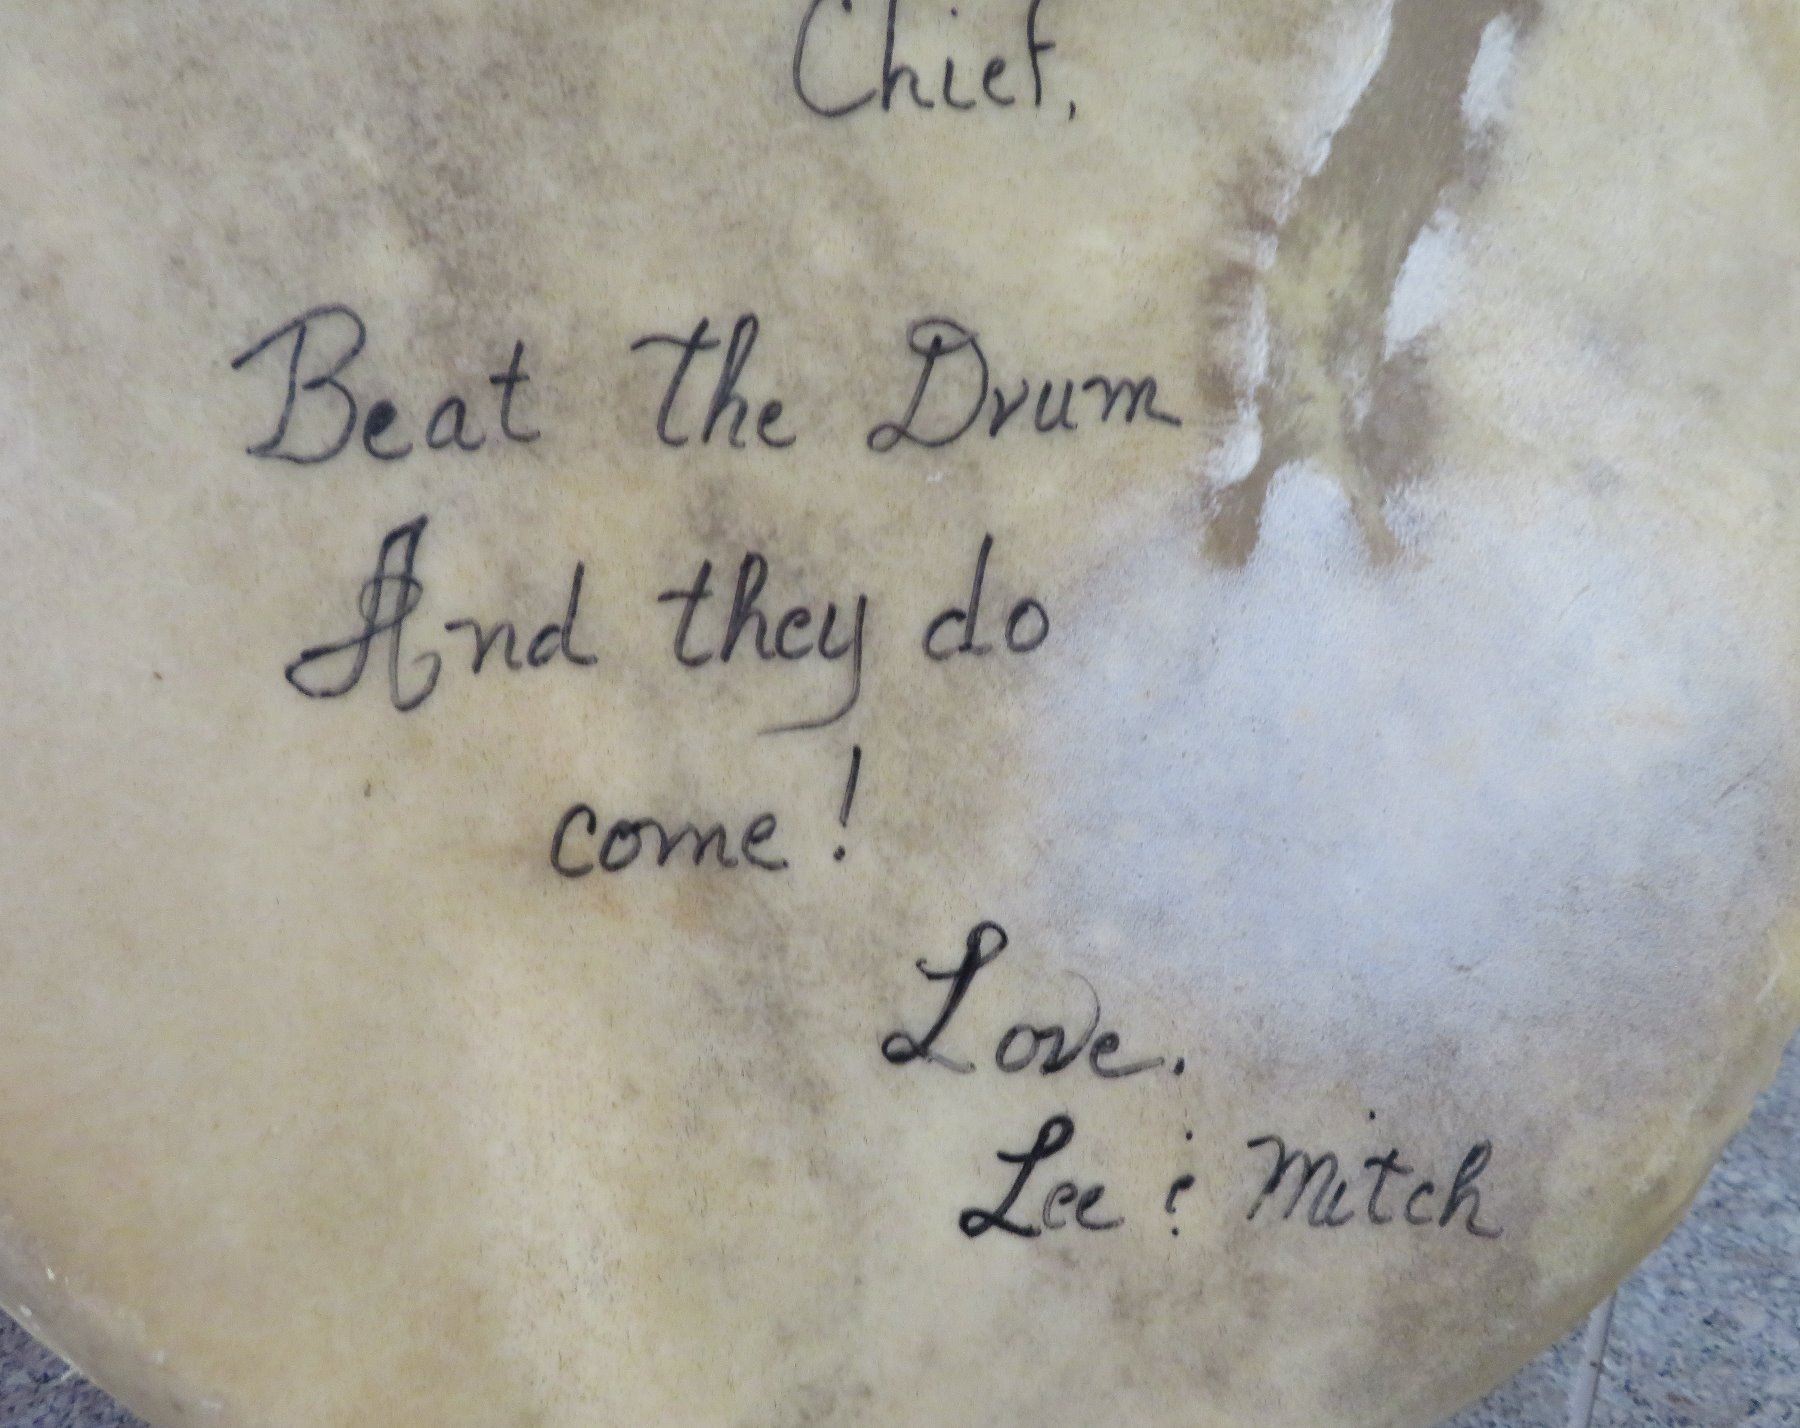 Chief,
Beat the Drum
And they do
come!
Love.
Lee & Mitch